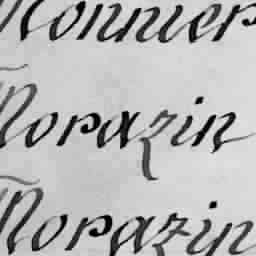 Monnier
Morazin
Morazin